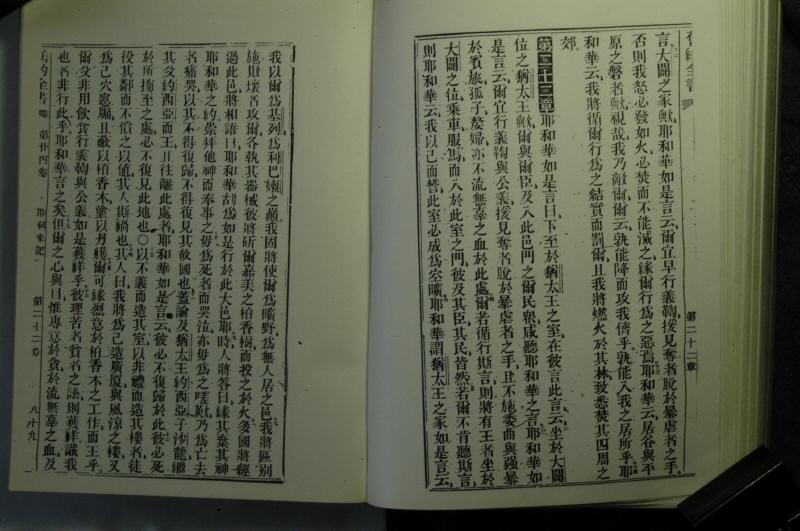 舊約全書
言、大闢之家歟、耶和華如是言云、爾宜早行義鞫、援見奪者脫於暴虐者之手、
否則我怒必發如火、必焚而不能滅之、緣爾行爲之惡焉、耶和華云、居谷與平
原之磐者歟、視哉、我乃敵爾、爾云、孰能降而攻我儕乎、孰能入我之居所乎、耶
和華云、我將循爾行爲之結實而罰爾、且我將燃火於其林、致悉焚其四周之
郊、
第二十二章 耶和華如是言曰、下至於猶太王之室、在彼言此言云、坐於大闢
位之猶太王歟、爾與爾臣及入此邑門之爾民、咸聽耶和華之言、耶和華如
是言云、爾宜行義鞫與公義、援見奪者脫於暴虐者之手、且不施委曲與强暴
於賓旅孤子嫠婦、亦不流無辜之血於此處、爾若循行斯言、則將有王者坐於
大闢之位、乘車服馬而入於此室之門、彼及其臣其民皆然、若爾不肯聽斯言、
則耶和華云、我以己而誓、此室必成爲空曠、耶和華謂猶太王之家如是言云、
第二十二章
我以爾爲基列、爲利巴嫩之巔、我固將使爾爲曠野、爲無人居之邑、我將區別
施敗壞者攻爾、各執其器械、彼將斫爾嘉美之柏香樹、而投之於火、多國將經
過此邑、將相語曰、耶和華胡爲如是行於此大邑耶、時人將答曰、緣其棄其神
耶和華之約、崇拜他神而奉事之、毋爲死者而哭泣、亦毋爲之嗟歎、乃爲亡去
者痛哭、以其不得復歸、不得復見其故國也、蓋論及猶太王約西亞子沙龍繼
其父約西亞而王、且往離此處者、耶和華如是言云、彼必不復歸於此、彼必死
於所擄至之處、必不復見此地也、○以不義而造其室、以非禮而造其樓者、徒
役其鄰而不償之以値、其人斯禍也、其人曰、我將爲己造廣廈與風涼之樓、又
爲己穴窻牖、且蔽以柏香木、塗以丹雘、爾可緣烈意於柏香木之工作而王乎、
爾父非用飲食、行義鞫與公義、如是獲祥乎、彼理苦者貧者之訟、則獲祥、識我
也者非行此乎、耶和華言之矣、但爾之心與目、惟專意於貪、於流無辜之血、及
舊約全書 第廿四卷 耶利米記 第二十二章 八十九